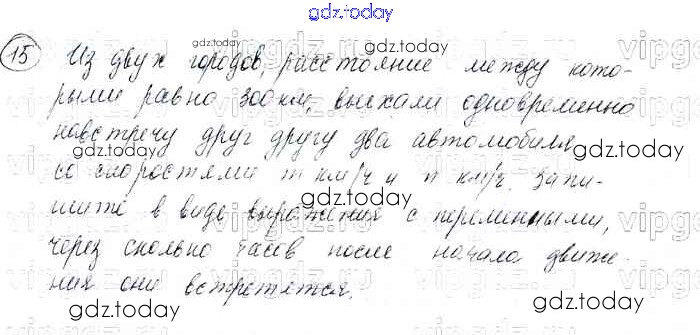 gdz.today
15 Из двух городов, расстояние между кото-
gdz.today
рыми равно 300 км, выехали одновременно
навстречу друг другу два автомобиля
gdz.today
со скоростями m км/ч и n км/ч. Запи-
gdz.today
шите в виде выражения с переменными,
gdz.today
через сколько часов после начала движе-
gdz.today
ния они встретятся.
gdz.today
gdz.today